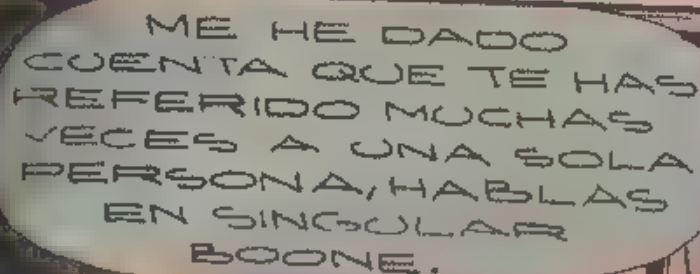 ME HE DADO
CUENTA QUE TE HAS
REFERIDO MUCHAS
VECES A UNA SOLA
PERSONA, HABLAS
EN SINGULAR
BOONE.